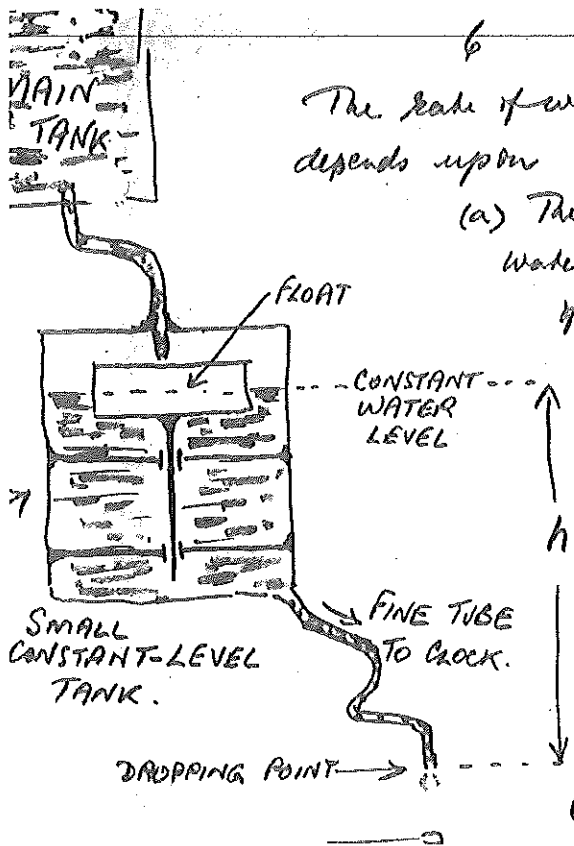 6
The rate of w
depends upon
(a) The
wate
MAIN
TANK
FLOAT
CONSTANT
WATER
LEVEL
h
SMALL
CONSTANT-LEVEL
TANK.
FINE TUBE
TO CLOCK.
DROPPING POINT